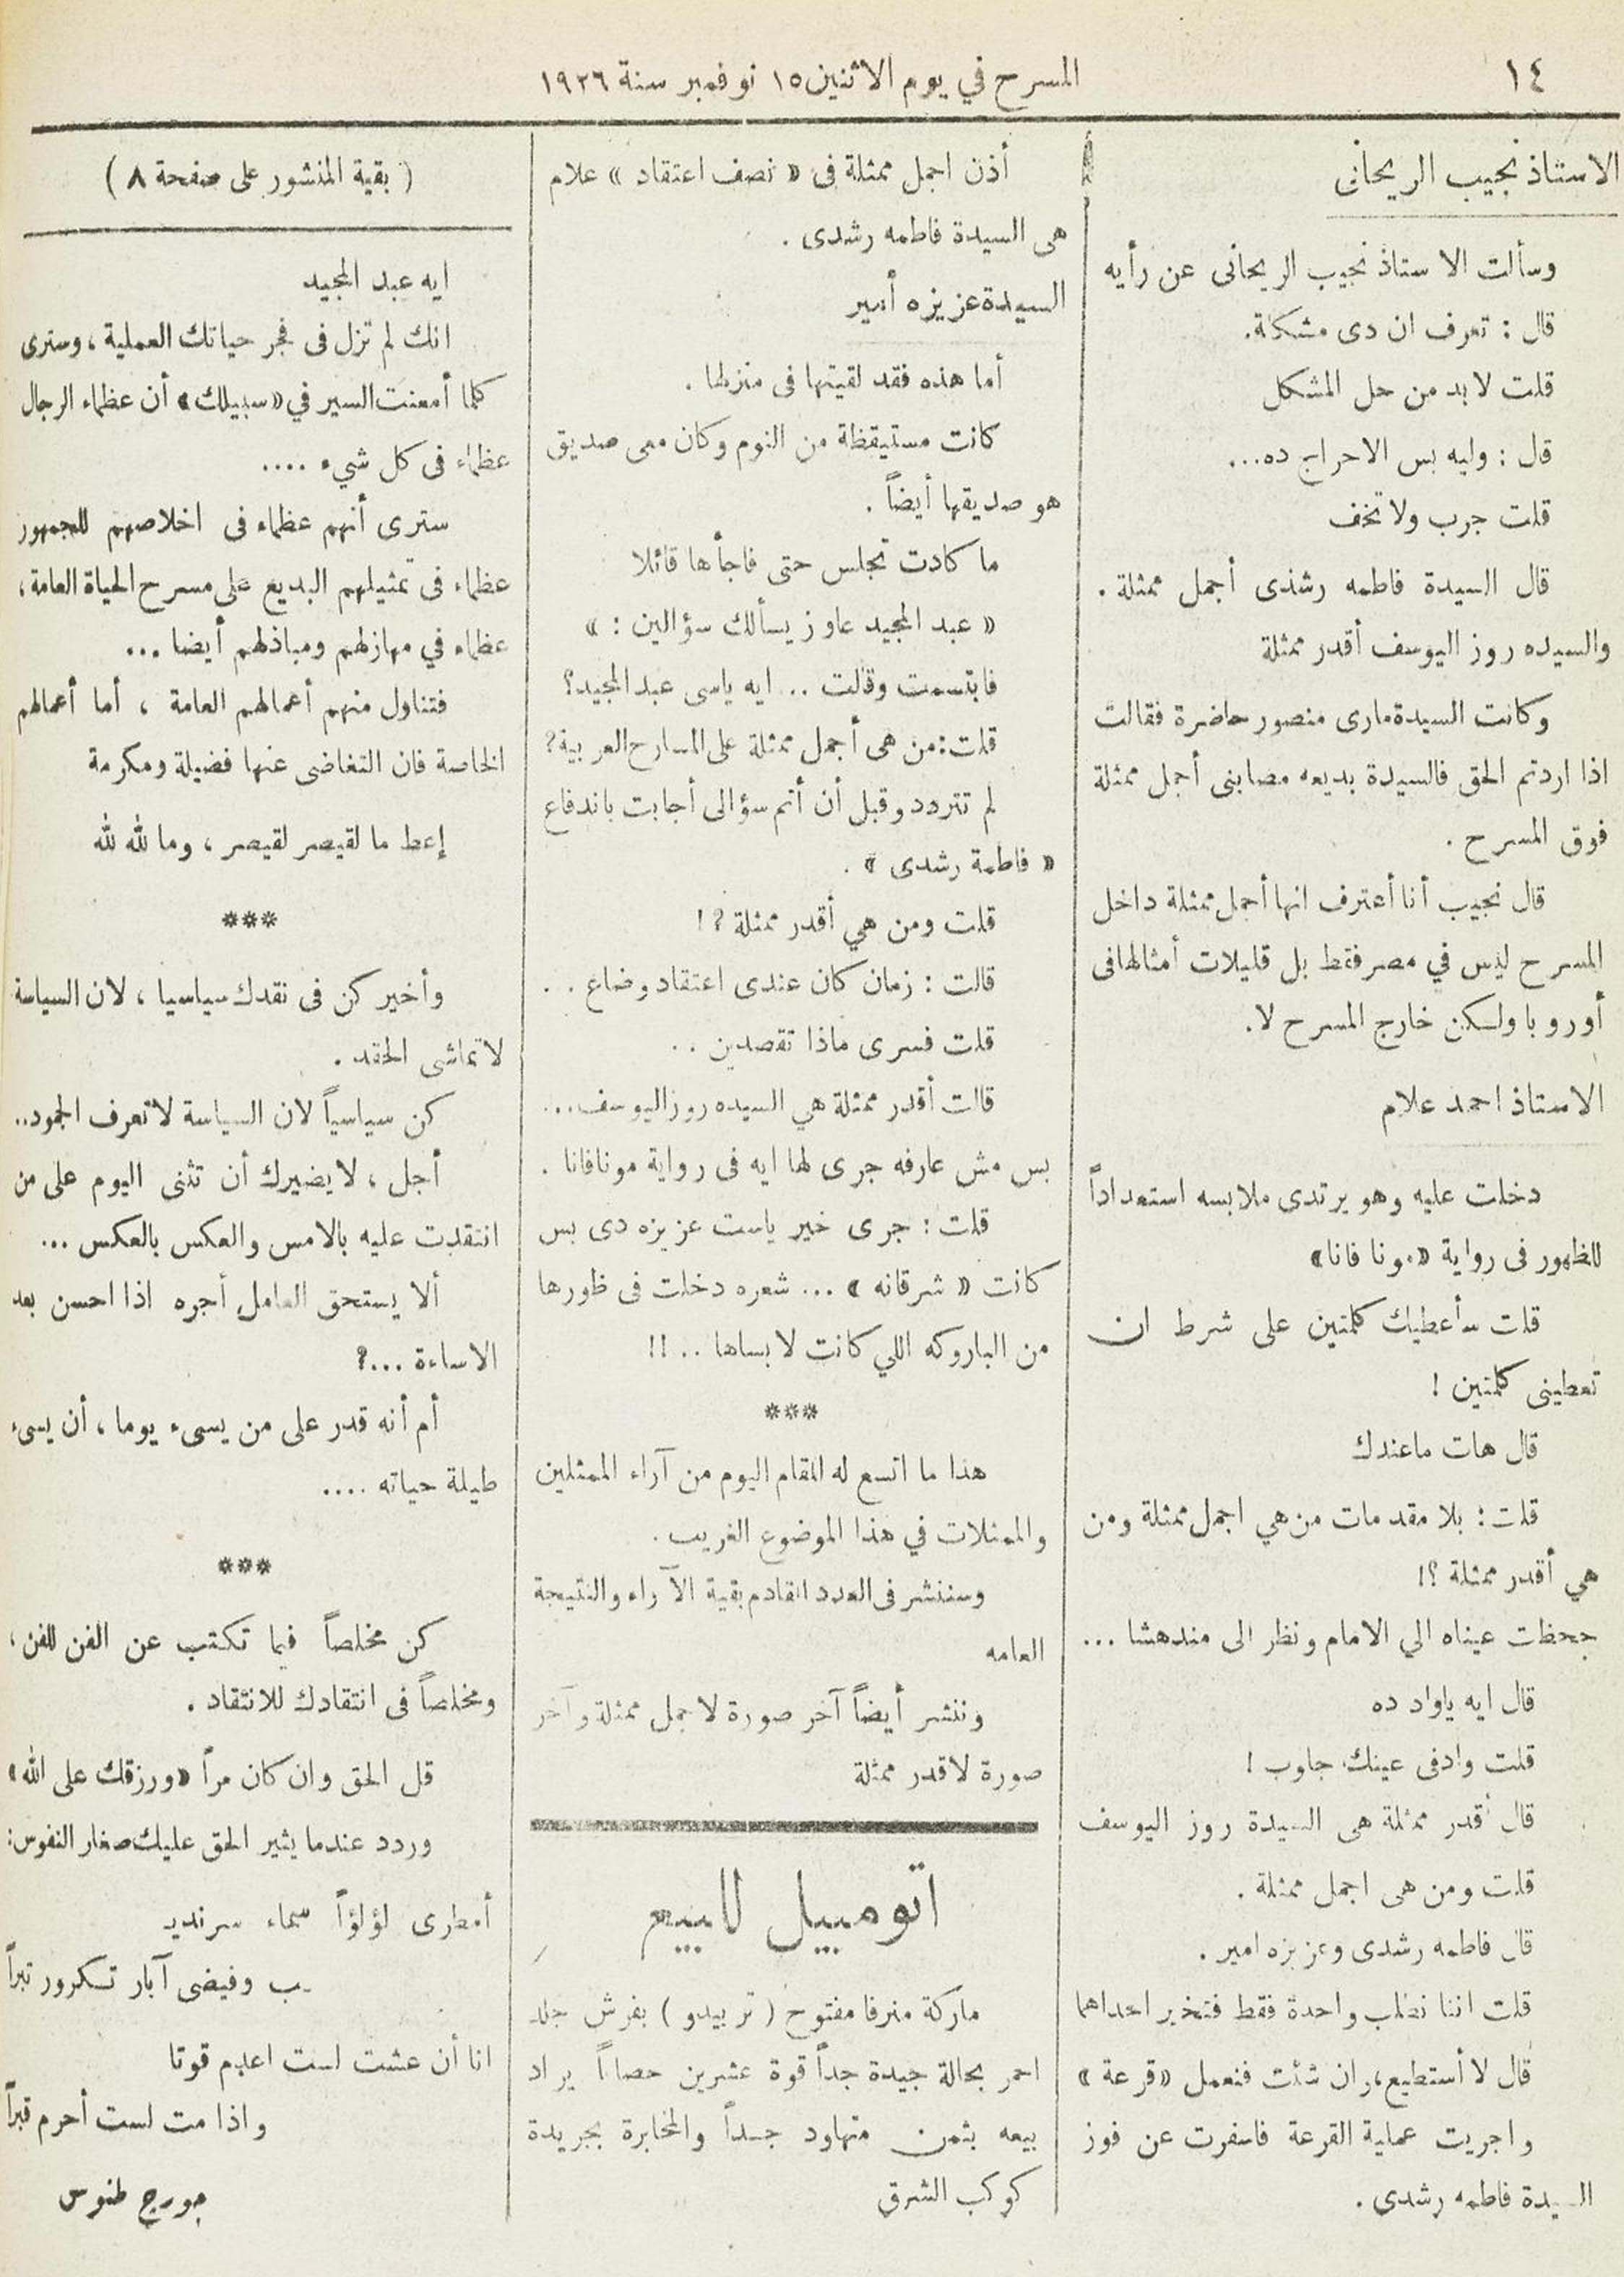 ١٤
المسرح في يوم الاثنين ١٥ نوفمبر سنة ١٩٢٦
الاستاذ نجيب الريحانى
وسألت الاستاذ نجيب الريحانى عن رأيه
قال : تعرف ان دى مشكلة.
قلت لا بد من حل المشكل
قال : وليه بس الاحراج ده...
قلت جرب ولا تخف
قال السيدة فاطمه رشدى أجمل ممثلة .
والسيده روز اليوسف أقدر ممثلة
وكانت السيدة مارى منصور حاضرة فقالت
اذا اردتم الحق فالسيدة بديعه مصابنى أجمل ممثلة
فوق المسرح .
قال نجيب أنا أعترف انها أجمل ممثلة داخل
المسرح ليس في مصر فقط بل قليلات أمثالها فى
أوروبا ولكن خارج المسرح لا.
الاستاذ احمد علام
دخلت عليه وهو يرتدى ملابسه استعداداً
للظهور فى رواية «مونا فانا»
قلت سأعطيك كلمتين على شرط ان
تعطينى كلمتين !
قال هات ماعندك
قلت : بلا مقدمات من هي اجمل ممثلة ومن
هي أقدر ممثلة ؟!
جحظت عيناه الي الامام ونظر الى مندهشا ...
قال ايه ياواد ده
قلت وادفى عينك جاوب !
قال أقدر ممثلة هى السيدة روز اليوسف
قلت ومن هى اجمل ممثلة .
قال فاطمه رشدى وعزيزه امير .
قلت اننا نطلب واحدة فقط فتخير احداهما
قال لا أستطيع، وان شئت فنعمل «قرعة»
واجريت عملية القرعة فاسفرت عن فوز
السيدة فاطمه رشدى .
أذن اجمل ممثلة فى « نصف اعتقاد » علام
هى السيدة فاطمه رشدى .
السيدة عزيزه أمير
أما هذه فقد لقيتها فى منزلها .
كانت مستيقظة من النوم وكان معى صديق
هو صديقها أيضاً .
ما كادت تجلس حتى فاجأها قائلا
« عبد المجيد عاوز يسألك سؤالين : »
فابتسمت وقالت ... ايه ياسى عبد المجيد؟
قلت : من هى أجمل ممثلة على المسارح العربية؟
لم تتردد وقبل أن أتم سؤالى أجابت باندفاع
« فاطمة رشدى » .
قلت ومن هي أقدر ممثلة ؟!
قالت : زمان كان عندى اعتقاد وضاع . .
قلت فسرى ماذا تقصدين . .
قالت أقدر ممثلة هي السيده روز اليوسف...
بس مش عارفه جرى لها ايه فى رواية مونافانا .
قلت : جرى خير ياست عزيزه دى بس
كانت « شرقانه » ... شعره دخلت فى ظورها
من الباروكه اللي كانت لابساها .. !!
***
هذا ما اتسع له المقام اليوم من آراء الممثلين
والممثلات في هذا الموضوع الغريب .
وسننشر فى العدد القادم بقية الآراء والنتيجة
العامه
وننشر أيضاً آخر صورة لاجمل ممثلة وآخر
صورة لاقدر ممثلة
اتومبيل للبيع
ماركة منرفا مفتوح ( تربيدو ) بفرش جلد
احمر بحالة جيدة جداً قوة عشرين حصاناً يراد
بيعه بثمن متهاود جداً والمخابرة بجريدة
كوكب الشرق
( بقية المنشور على صفحة ٨ )
ايه عبد المجيد
انك لم تزل فى فجر حياتك العملية ، وسترى
كلما أمعنت السير في «سبيلك» أن عظماء الرجال
عظماء فى كل شيء ....
سترى أنهم عظماء فى اخلاصهم للجمهور
عظماء فى تمثيلهم البديع على مسرح الحياة العامة ،
عظماء في مهازلهم ومباذلهم أيضا ...
فتناول منهم أعمالهم العامة ، أما أعمالهم
الخاصة فان التغاضى عنها فضيلة ومكرمة
إعط ما لقيصر لقيصر ، وما لله لله
***
وأخير كن فى نقدك سياسيا ، لان السياسة
لا تماشى الحقد .
كن سياسياً لان السياسة لا تعرف الجمود..
أجل ، لا يضيرك أن تثنى اليوم على من
انتقدت عليه بالامس والعكس بالعكس ...
ألا يستحق العامل أجره اذا احسن بعد
الاساءة ...؟
أم أنه قدر على من يسىء يوما ، أن يسىء
طيلة حياته ....
***
كن مخلصاً فيما تكتب عن الفن للفن ،
ومخلصاً فى انتقادك للانتقاد .
قل الحق وان كان مراً «ورزقك على الله»
وردد عندما يثير الحق عليك صغار النفوس:
أمطرى لؤلؤاً سماء سرنديـ
ـب وفيضى آبار تكرور تبراً
انا أن عشت لست اعدم قوتا
واذا مت لست أحرم قبراً
جورج طنوس